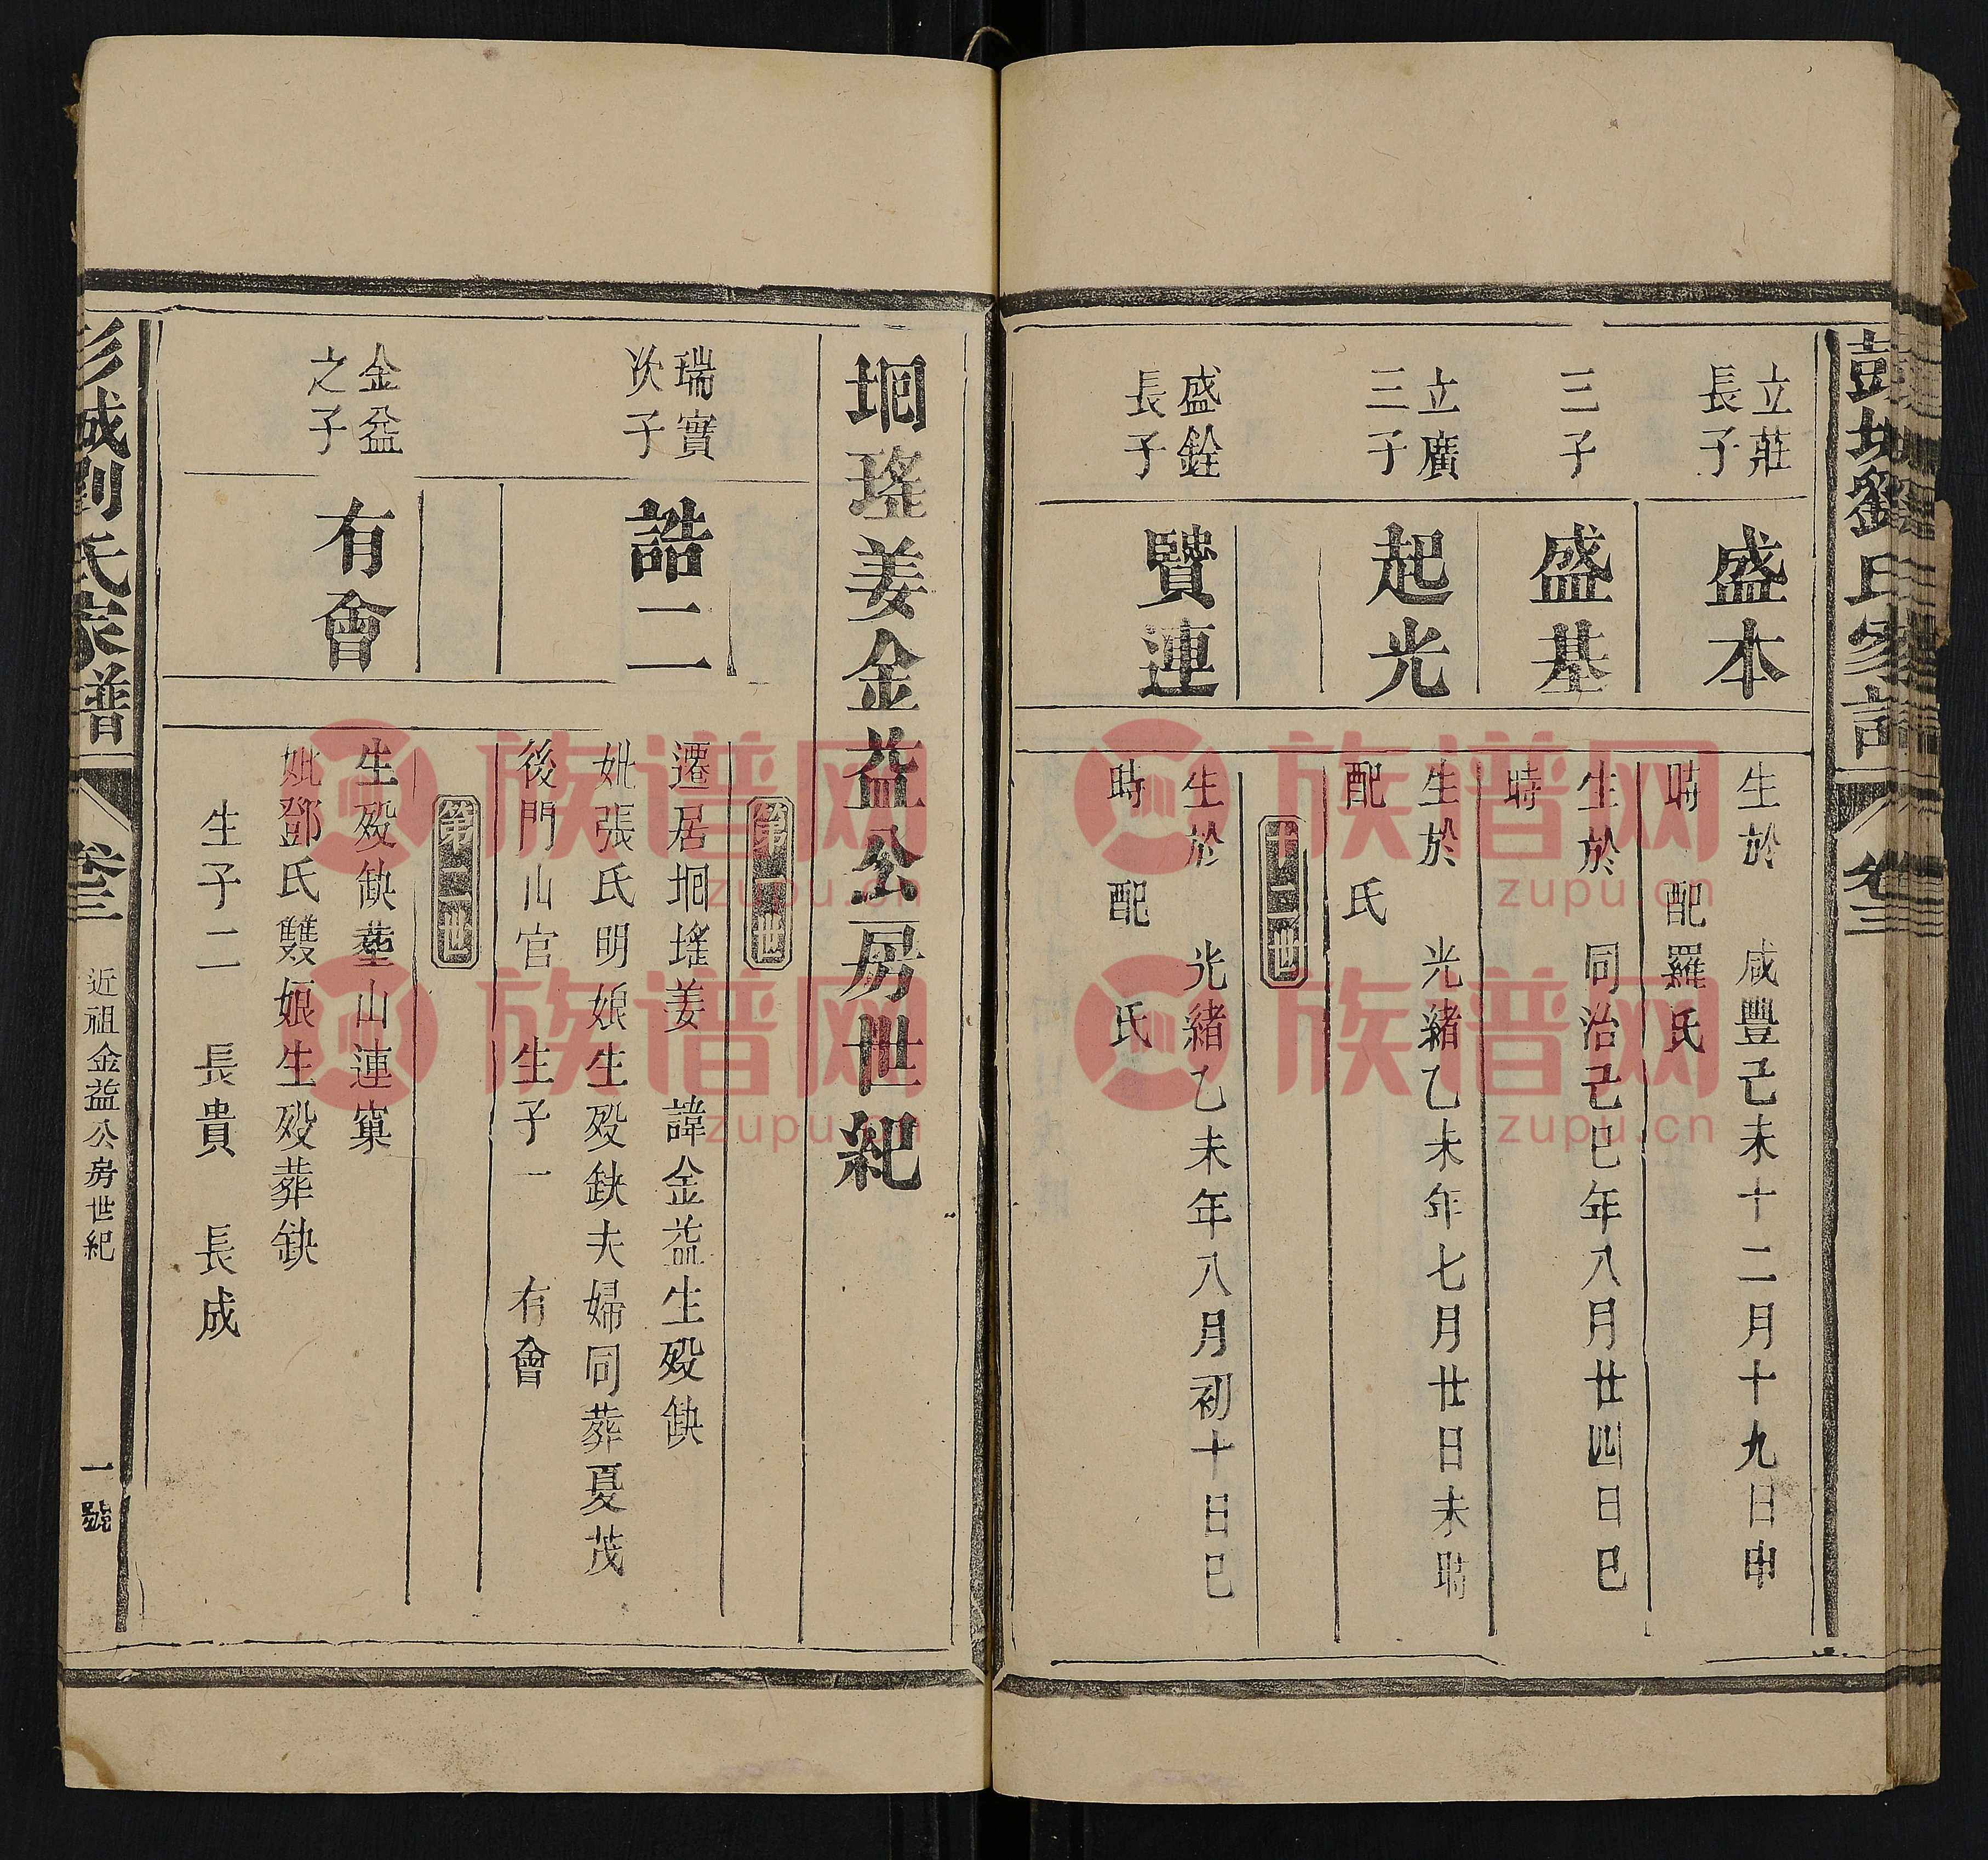 彭城劉氏家譜 卷三
立莊
長子
盛本
生於 咸豐己未十二月十九日申
時 配羅氏
三子
盛基
生於 同治己巳年八月廿四日巳
時
立廣
三子
起光
生於 光緒乙未年七月廿日未時
配 氏
十二世
盛銓
長子
賢連
生於 光緒乙未年八月初十日巳
時 配 氏
垌瑤姜金益公房世紀
第一世
瑞實
次子
誥二
遷居垌瑤姜 諱金益生殁缺
妣張氏明娘生殁缺夫婦同葬夏茂
後門山官 生子一 有會
第二世
金益
之子
有會
生殁缺塟山連窠
妣鄧氏雙娘生殁葬缺
生子二 長貴 長成
彭城劉氏家譜 卷三 近祖金益公房世紀 一號
族谱网
zupu.cn
族谱网
zupu.cn
族谱网
zupu.cn
族谱网
zupu.cn